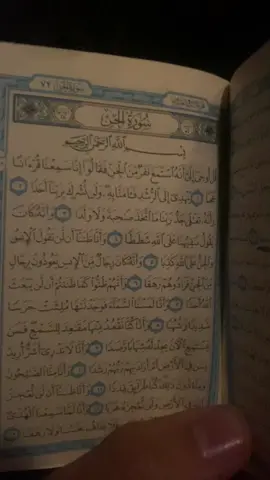 سورة الجن ٧٢
سُورَةُ الْجِنِّ
بِسْمِ اللَّهِ الرَّحْمَٰنِ الرَّحِيمِ
قُلْ أُوحِيَ إِلَيَّ أَنَّهُ اسْتَمَعَ نَفَرٌ مِنَ الْجِنِّ فَقَالُوا إِنَّا سَمِعْنَا قُرْآنًا
عَجَبًا ١ يَهْدِي إِلَى الرُّشْدِ فَآمَنَّا بِهِ وَلَنْ نُشْرِكَ بِرَبِّنَا أَحَدًا ٢
وَأَنَّهُ تَعَالَى جَدُّ رَبِّنَا مَا اتَّخَذَ صَاحِبَةً وَلَا وَلَدًا ٣ وَأَنَّهُ كَانَ
يَقُولُ سَفِيهُنَا عَلَى اللَّهِ شَطَطًا ٤ وَأَنَّا ظَنَنَّا أَنْ لَنْ تَقُولَ الْإِنْسُ
وَالْجِنُّ عَلَى اللَّهِ كَذِبًا ٥ وَأَنَّهُ كَانَ رِجَالٌ مِنَ الْإِنْسِ يَعُوذُونَ بِرِجَالٍ
مِنَ الْجِنِّ فَزَادُوهُمْ رَهَقًا ٦ وَأَنَّهُمْ ظَنُّوا كَمَا ظَنَنْتُمْ أَنْ لَنْ يَبْعَثَ
اللَّهُ أَحَدًا ٧ وَأَنَّا لَمَسْنَا السَّمَاءَ فَوَجَدْنَاهَا مُلِئَتْ حَرَسًا
شَدِيدًا وَشُهُبًا ٨ وَأَنَّا كُنَّا نَقْعُدُ مِنْهَا مَقَاعِدَ لِلسَّمْعِ فَمَنْ
يَسْتَمِعِ الْآنَ يَجِدْ لَهُ شِهَابًا رَصَدًا ٩ وَأَنَّا لَا نَدْرِي أَشَرٌّ أُرِيدَ
بِمَنْ فِي الْأَرْضِ أَمْ أَرَادَ بِهِمْ رَبُّهُمْ رَشَدًا ١٠ وَأَنَّا مِنَّا الصَّالِحُونَ
وَمِنَّا دُونَ ذَلِكَ كُنَّا طَرَائِقَ قِدَدًا ١١ وَأَنَّا ظَنَنَّا أَنْ لَنْ نُعْجِزَ
اللَّهَ فِي الْأَرْضِ وَلَنْ نُعْجِزَهُ هَرَبًا ١٢ وَأَنَّا لَمَّا سَمِعْنَا الْهُدَى
فَلَا يَخَافُ بَخْسًا وَلَا رَهَقًا ١٣